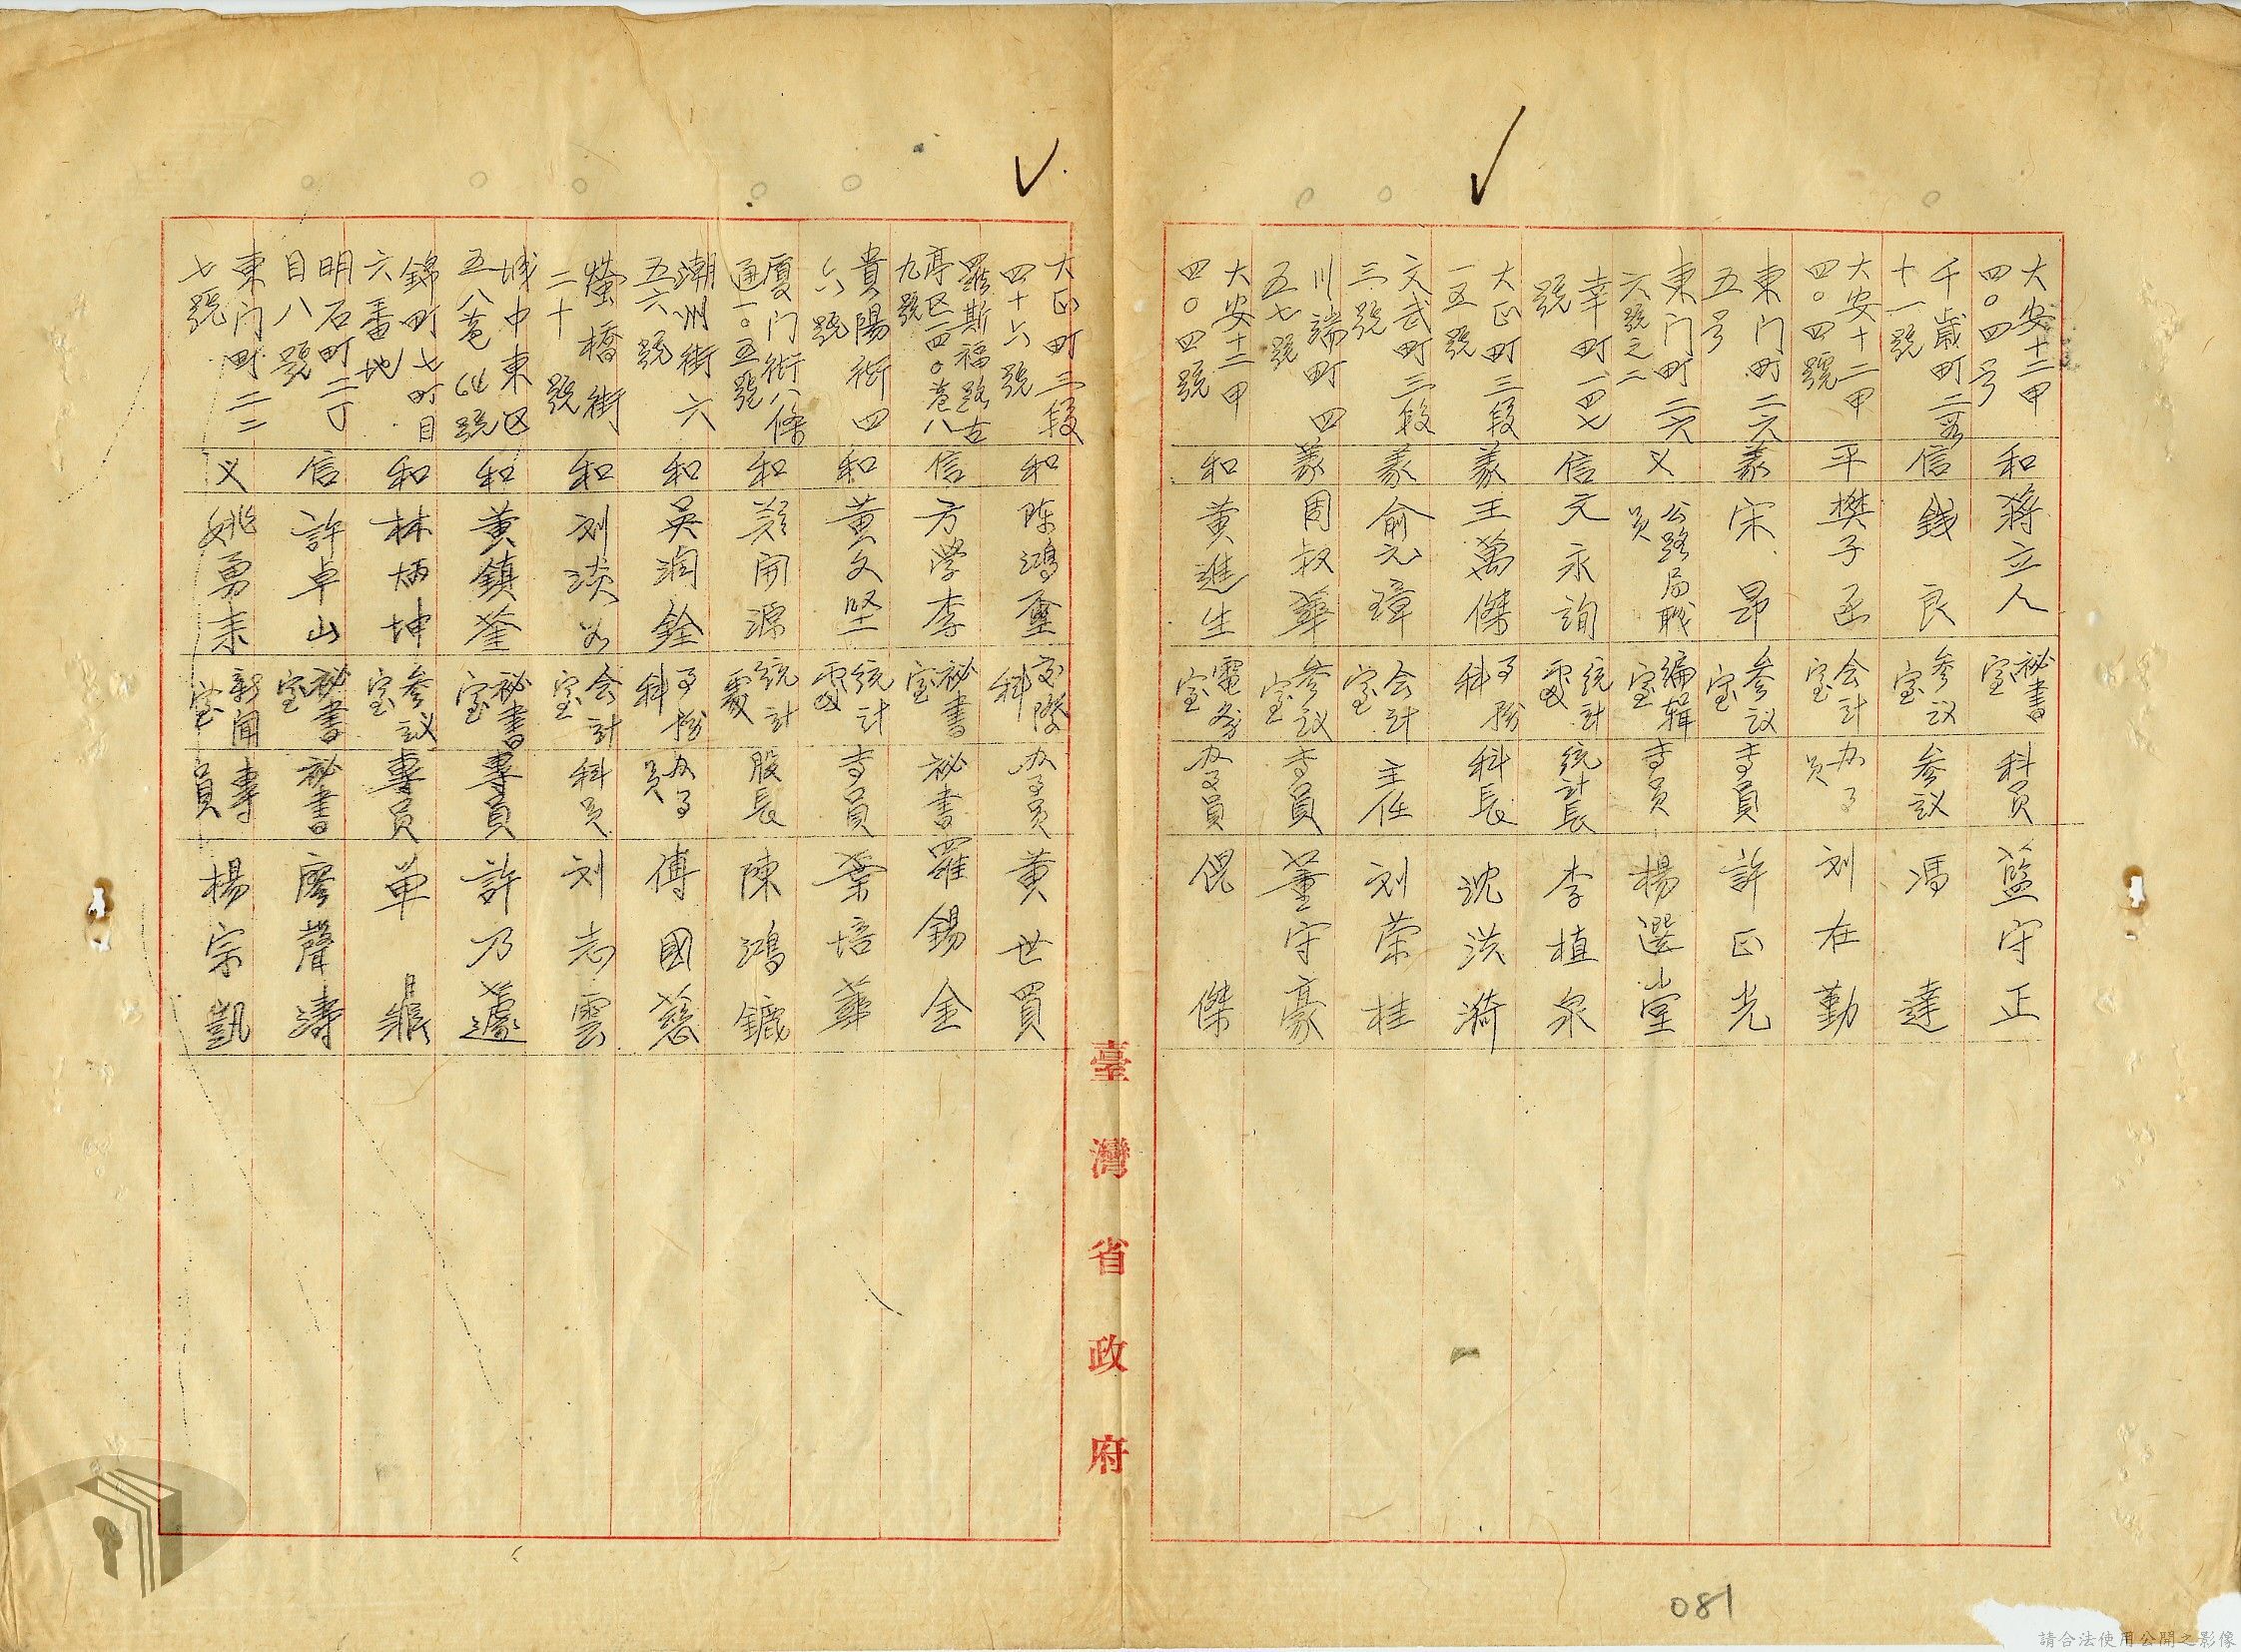 大安十二甲
四〇四号
和
蔣立人
秘書
室
科員
藍守正
千歲町二ノ
十一號
信
錢良
参议
室
参议
馮達
大安十二甲
四〇四號
平
樊子函
会计
室
办事
员
刘在勤
東门町二六
五号
義
宋昂
参议
室
專員
許正光
東门町二六
六號之二
义
公路局職
员
编辑
室
專员
楊選堂
幸町一四七
號
信
元永詢
統計
處
統計長
李植泉
大正町三段
一五號
義
王萬傑
事務
科
科長
沈洪漪
文武町三段
三號
義
俞元璋
会計
室
主任
刘荣桂
川端町四
五七號
義
周叔華
参议
室
專員
董守豪
大安十二甲
四〇四號
和
黄進生
電务
室
办事員
倪傑
大正町三段
四十六號
和
陈鴻璽
交際
科
办事员
黄世買
羅斯福路古
亭区一四〇巷八
九號
信
方學李
祕書
室
祕書
羅錫金
貴陽街四
六號
和
黄文堅
統計
處
專員
葉培華
厦门街八條
通一〇五號
和
鄭開源
統計
處
股長
陳鴻鑣
潮州街六
五六號
和
吳润銓
事務
科
办事
員
傅國慈
螢橋街
二十號
和
刘淡如
会計
室
科员
刘志雲
城中東区
五八巷64號
和
黄鎮荃
祕書
室
專員
許乃蘧
錦町七町目
六番地
和
林炳坤
参议
室
專员
单鼎
明石町二丁
目八號
信
許卓山
祕書
室
祕書
廖聲濤
東门町二二
七號
义
姚勇来
新聞
室
專
員
楊宗凱
臺灣省政府
081
請合法使用公開之影像